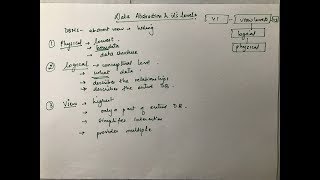 Data Abstraction & its levels
DBMS - abstract view + hiding
V1
view level
logical
physical
① Physical → lowest
→ how data
→ data structure
② Logical → conceptual level
→ what data
→ describe the relationships
→ describes the entire DB
③ View → highest
→ only a part of entire DB
→ simplifies interaction
→ provides multiple